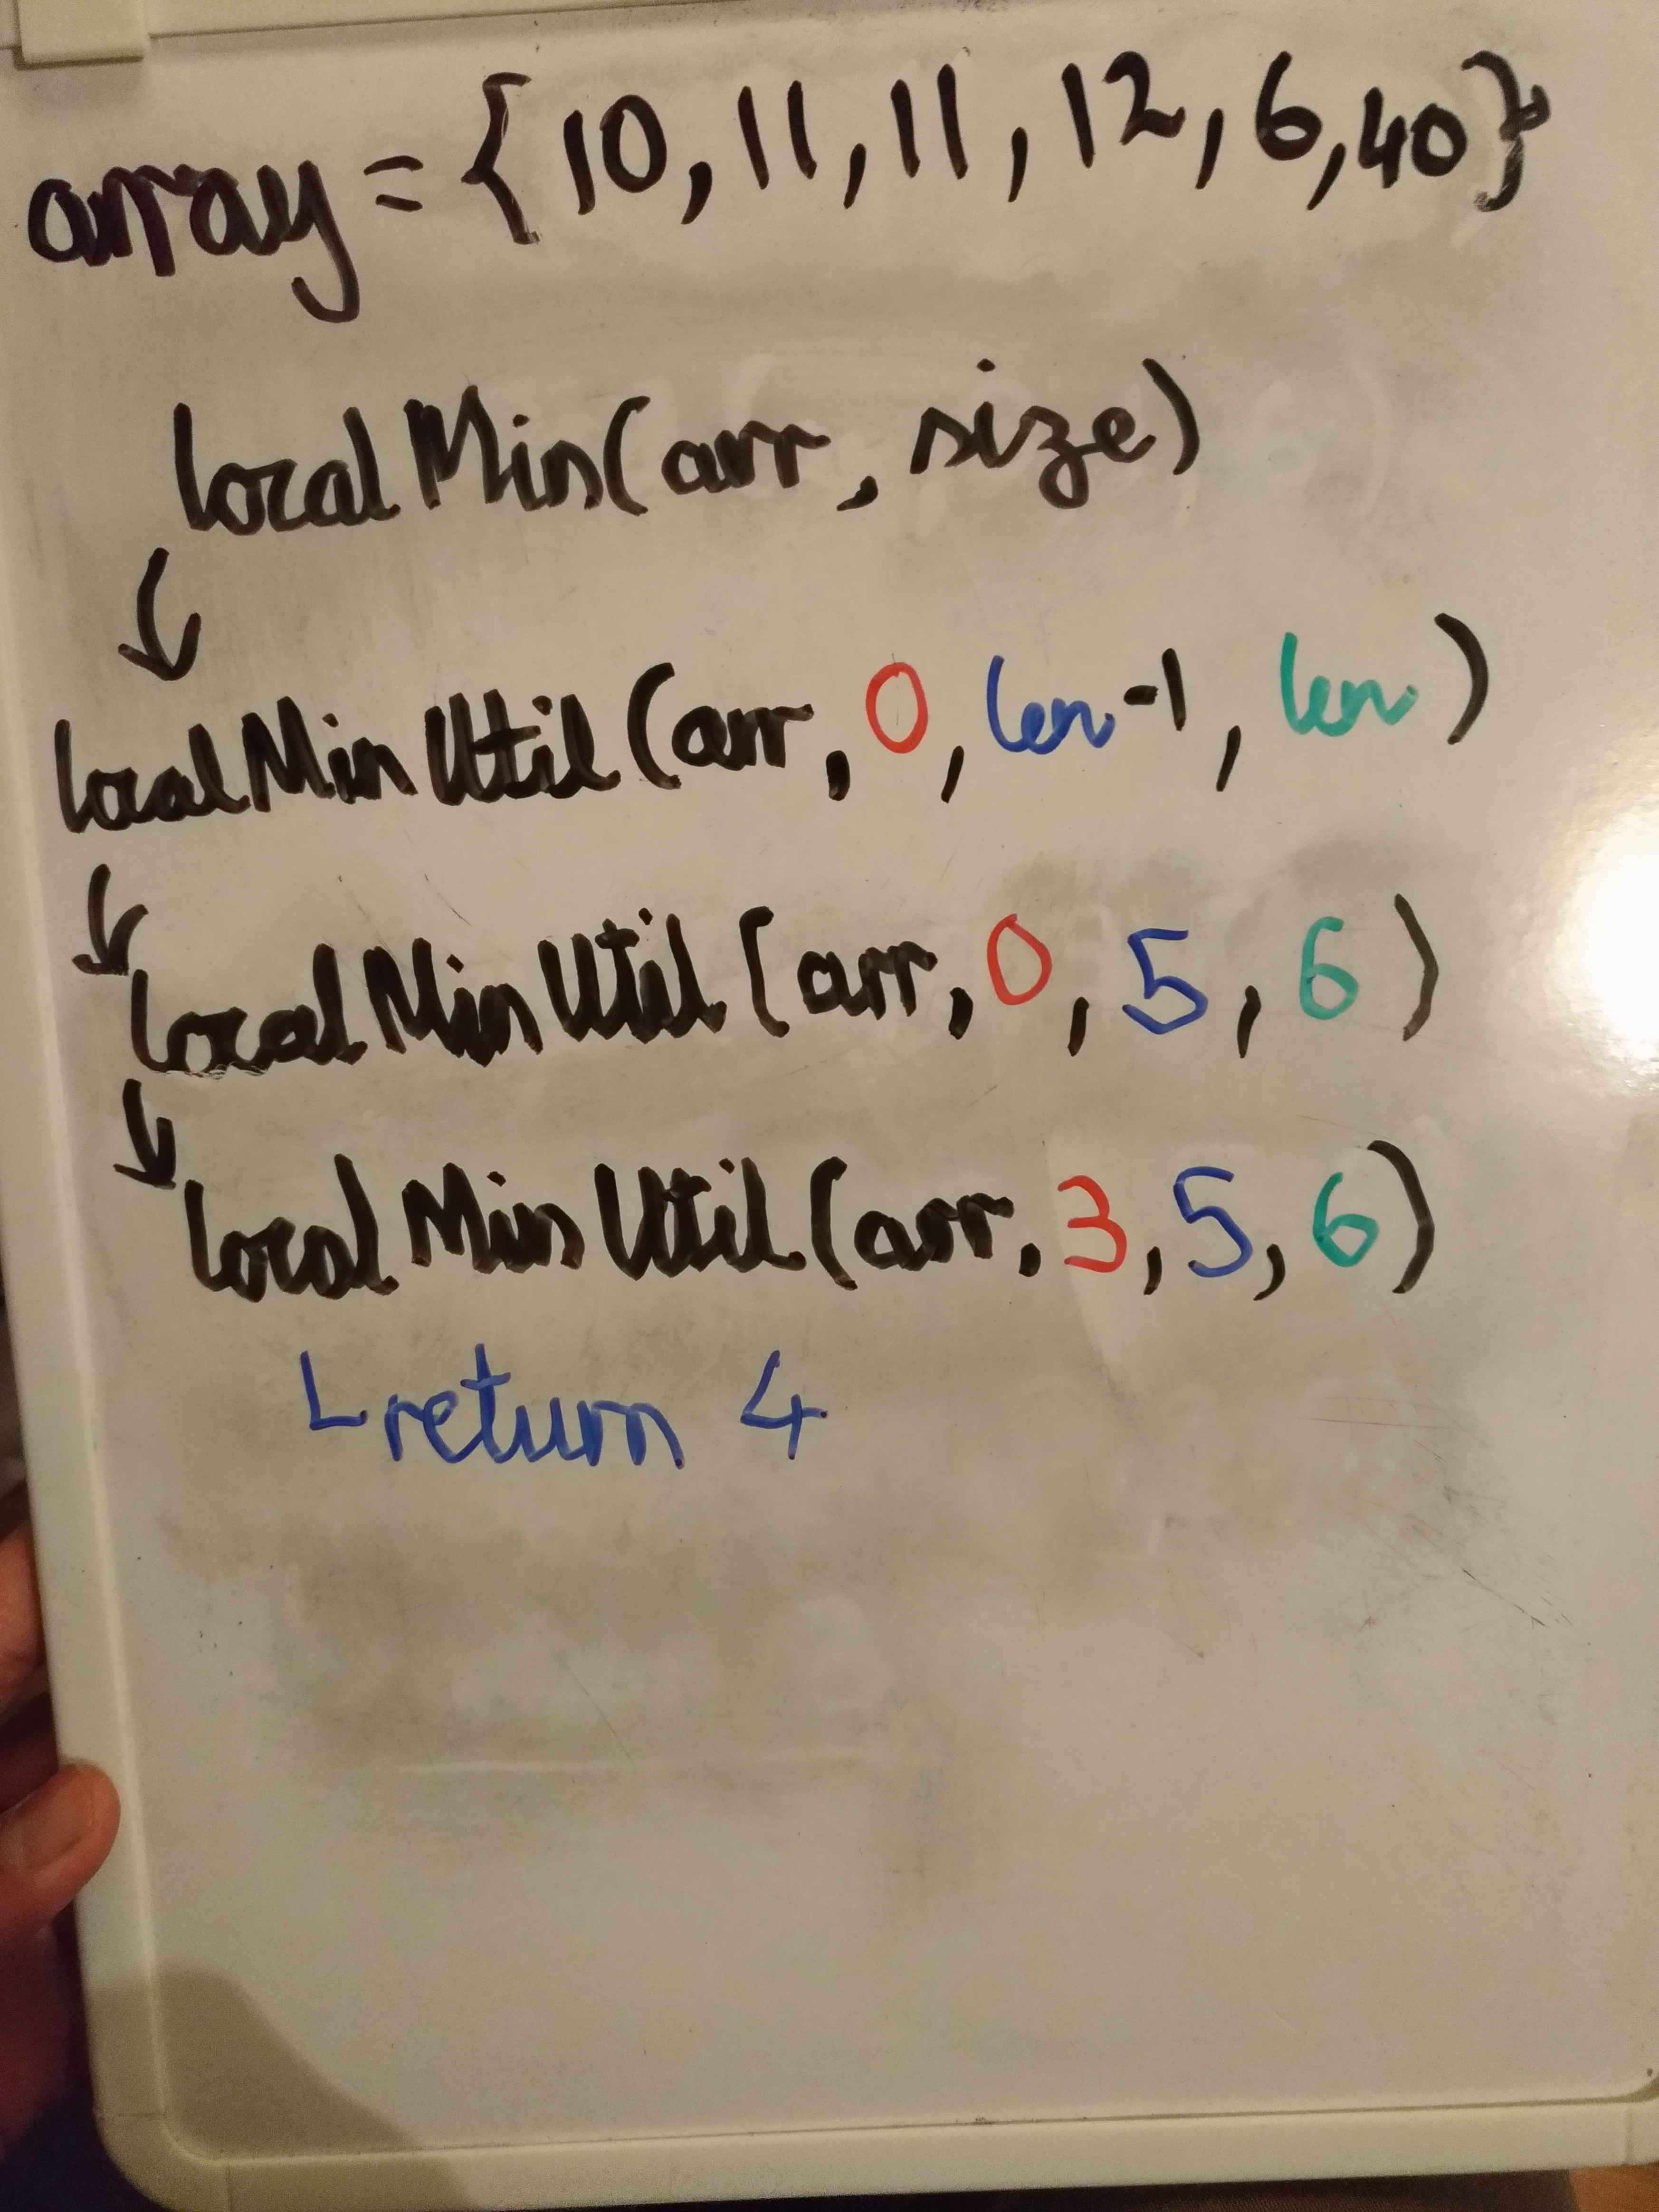 array = {10, 11, 11, 12, 6, 40}
localMin(arr, size)
localMinUtil(arr, 0, len-1, len)
localMinUtil(arr, 0, 5, 6)
localMinUtil(arr, 3, 5, 6)
return 4